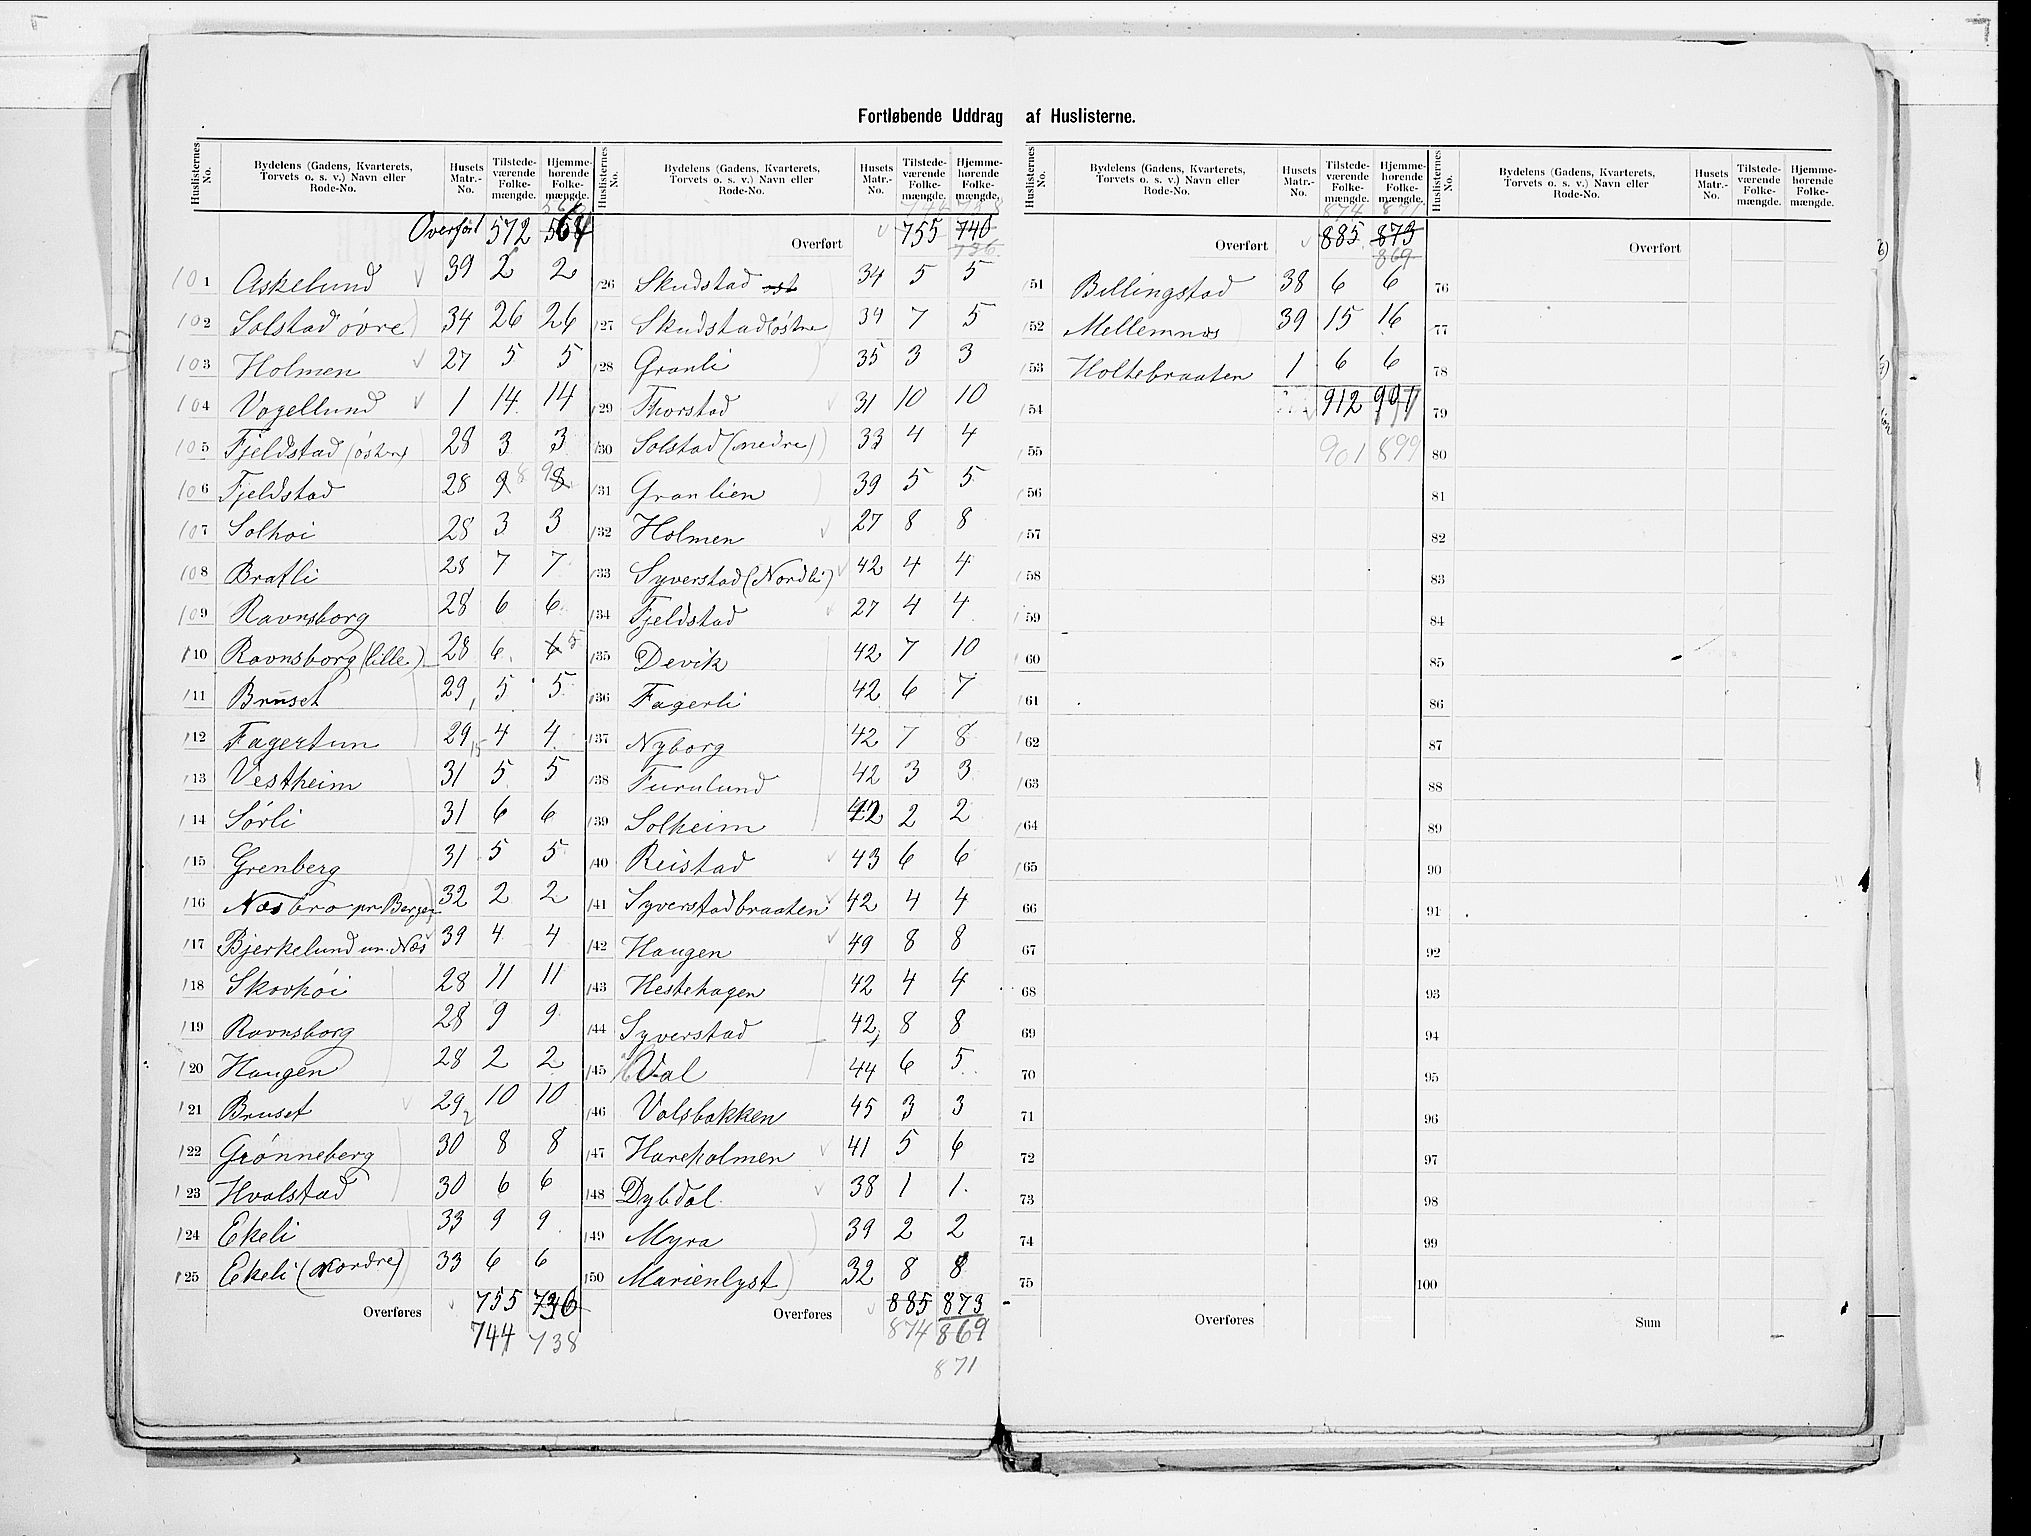 Fortløbende Uddrag af Huslisterne.
Huslisternes No. Bydelens (Gadens, Kvarterets, Torvets o. s. v.) Navn eller Rode-No. Husets Matr.-No. Tilstedeværende Folkemængde. Hjemmehørende Folkemængde.
Overført 572 564
101 Askelund 39 2 2
102 Solstad øvre 34 26 26
103 Holmen 27 5 5
104 Vogellund 1 14 14
105 Fjeldstad (østre) 28 3 3
106 Fjeldstad 28 9 8 9 8
107 Solhøi 28 3 3
108 Bratli 28 7 7
109 Ravnsborg 28 6 6
110 Ravnsborg (lille) 28 6 6 5
111 Bruset 29,1 5 5
112 Fagertun 29,15 4 4
113 Vestheim 31 5 5
114 Sørli 31 6 6
115 Grenberg 31 5 5
116 Næsbro pr Bergen 32 2 2
117 Bjerkelund un. Næs 39 4 4
118 Skovhøi 28 11 11
119 Ravnsborg 28 9 9
120 Haugen 28 2 2
121 Bruset 29,2 10 10
122 Grønneberg 30 8 8
123 Hvalstad 30 6 6
124 Ekeli 33 9 9
125 Ekeli (nordre) 33 6 6
Overføres 755 736
744 738
Huslisternes No. Bydelens (Gadens, Kvarterets, Torvets o. s. v.) Navn eller Rode-No. Husets Matr.-No. Tilstedeværende Folkemængde. Hjemmehørende Folkemængde.
744 738
Overført 755 740
736
126 Skudstad øst 34 5 5
127 Skudstad (østre 34 7 5
128 Granli 35 3 3
129 Thorstad 31 10 10
130 Solstad (nedre) 33 4 4
131 Granlien 39 5 5
132 Holmen 27 8 8
133 Syverstad (Nordli) 42 4 4
134 Fjeldstad 27 4 4
135 Devik 42 7 10
136 Fagerli 42 6 7
137 Nyborg 42 7 8
138 Furulund 42 3 3
139 Solheim 42 2 2
140 Reistad 43 6 6
141 Syverstadbraaten 42 4 4
142 Haugen 49 8 8
143 Hestehagen 42 4 4
144 Syverstad 42,1 8 8
145 Val 44 6 5
146 Valsbakken 45 3 3
147 Hareholmen 41 5 6
148 Dybdal 38 1 1
149 Myra 39 2 2
150 Marienlyst 32 8 8
Overføres 885 873
874 869
871
Huslisternes No. Bydelens (Gadens, Kvarterets, Torvets o. s. v.) Navn eller Rode-No. Husets Matr.-No. Tilstedeværende Folkemængde. Hjemmehørende Folkemængde.
874 871
Overført 885 873
869
151 Billingstad 38 6 6
152 Mellemnæs 39 15 16
153 Holtebraaten 1 6 6
154 912 901
155 901 899
156
157
158
159
160
161
162
163
164
165
66
67
68
69
70
71
72
73
74
75
Overføres
Huslisternes No. Bydelens (Gadens, Kvarterets, Torvets o. s. v.) Navn eller Rode-No. Husets Matr.-No. Tilstedeværende Folkemængde. Hjemmehørende Folkemængde.
Overført
76
77
78
79
80
81
82
83
84
85
86
87
88
89
90
91
92
93
94
95
96
97
98
99
100
Sum